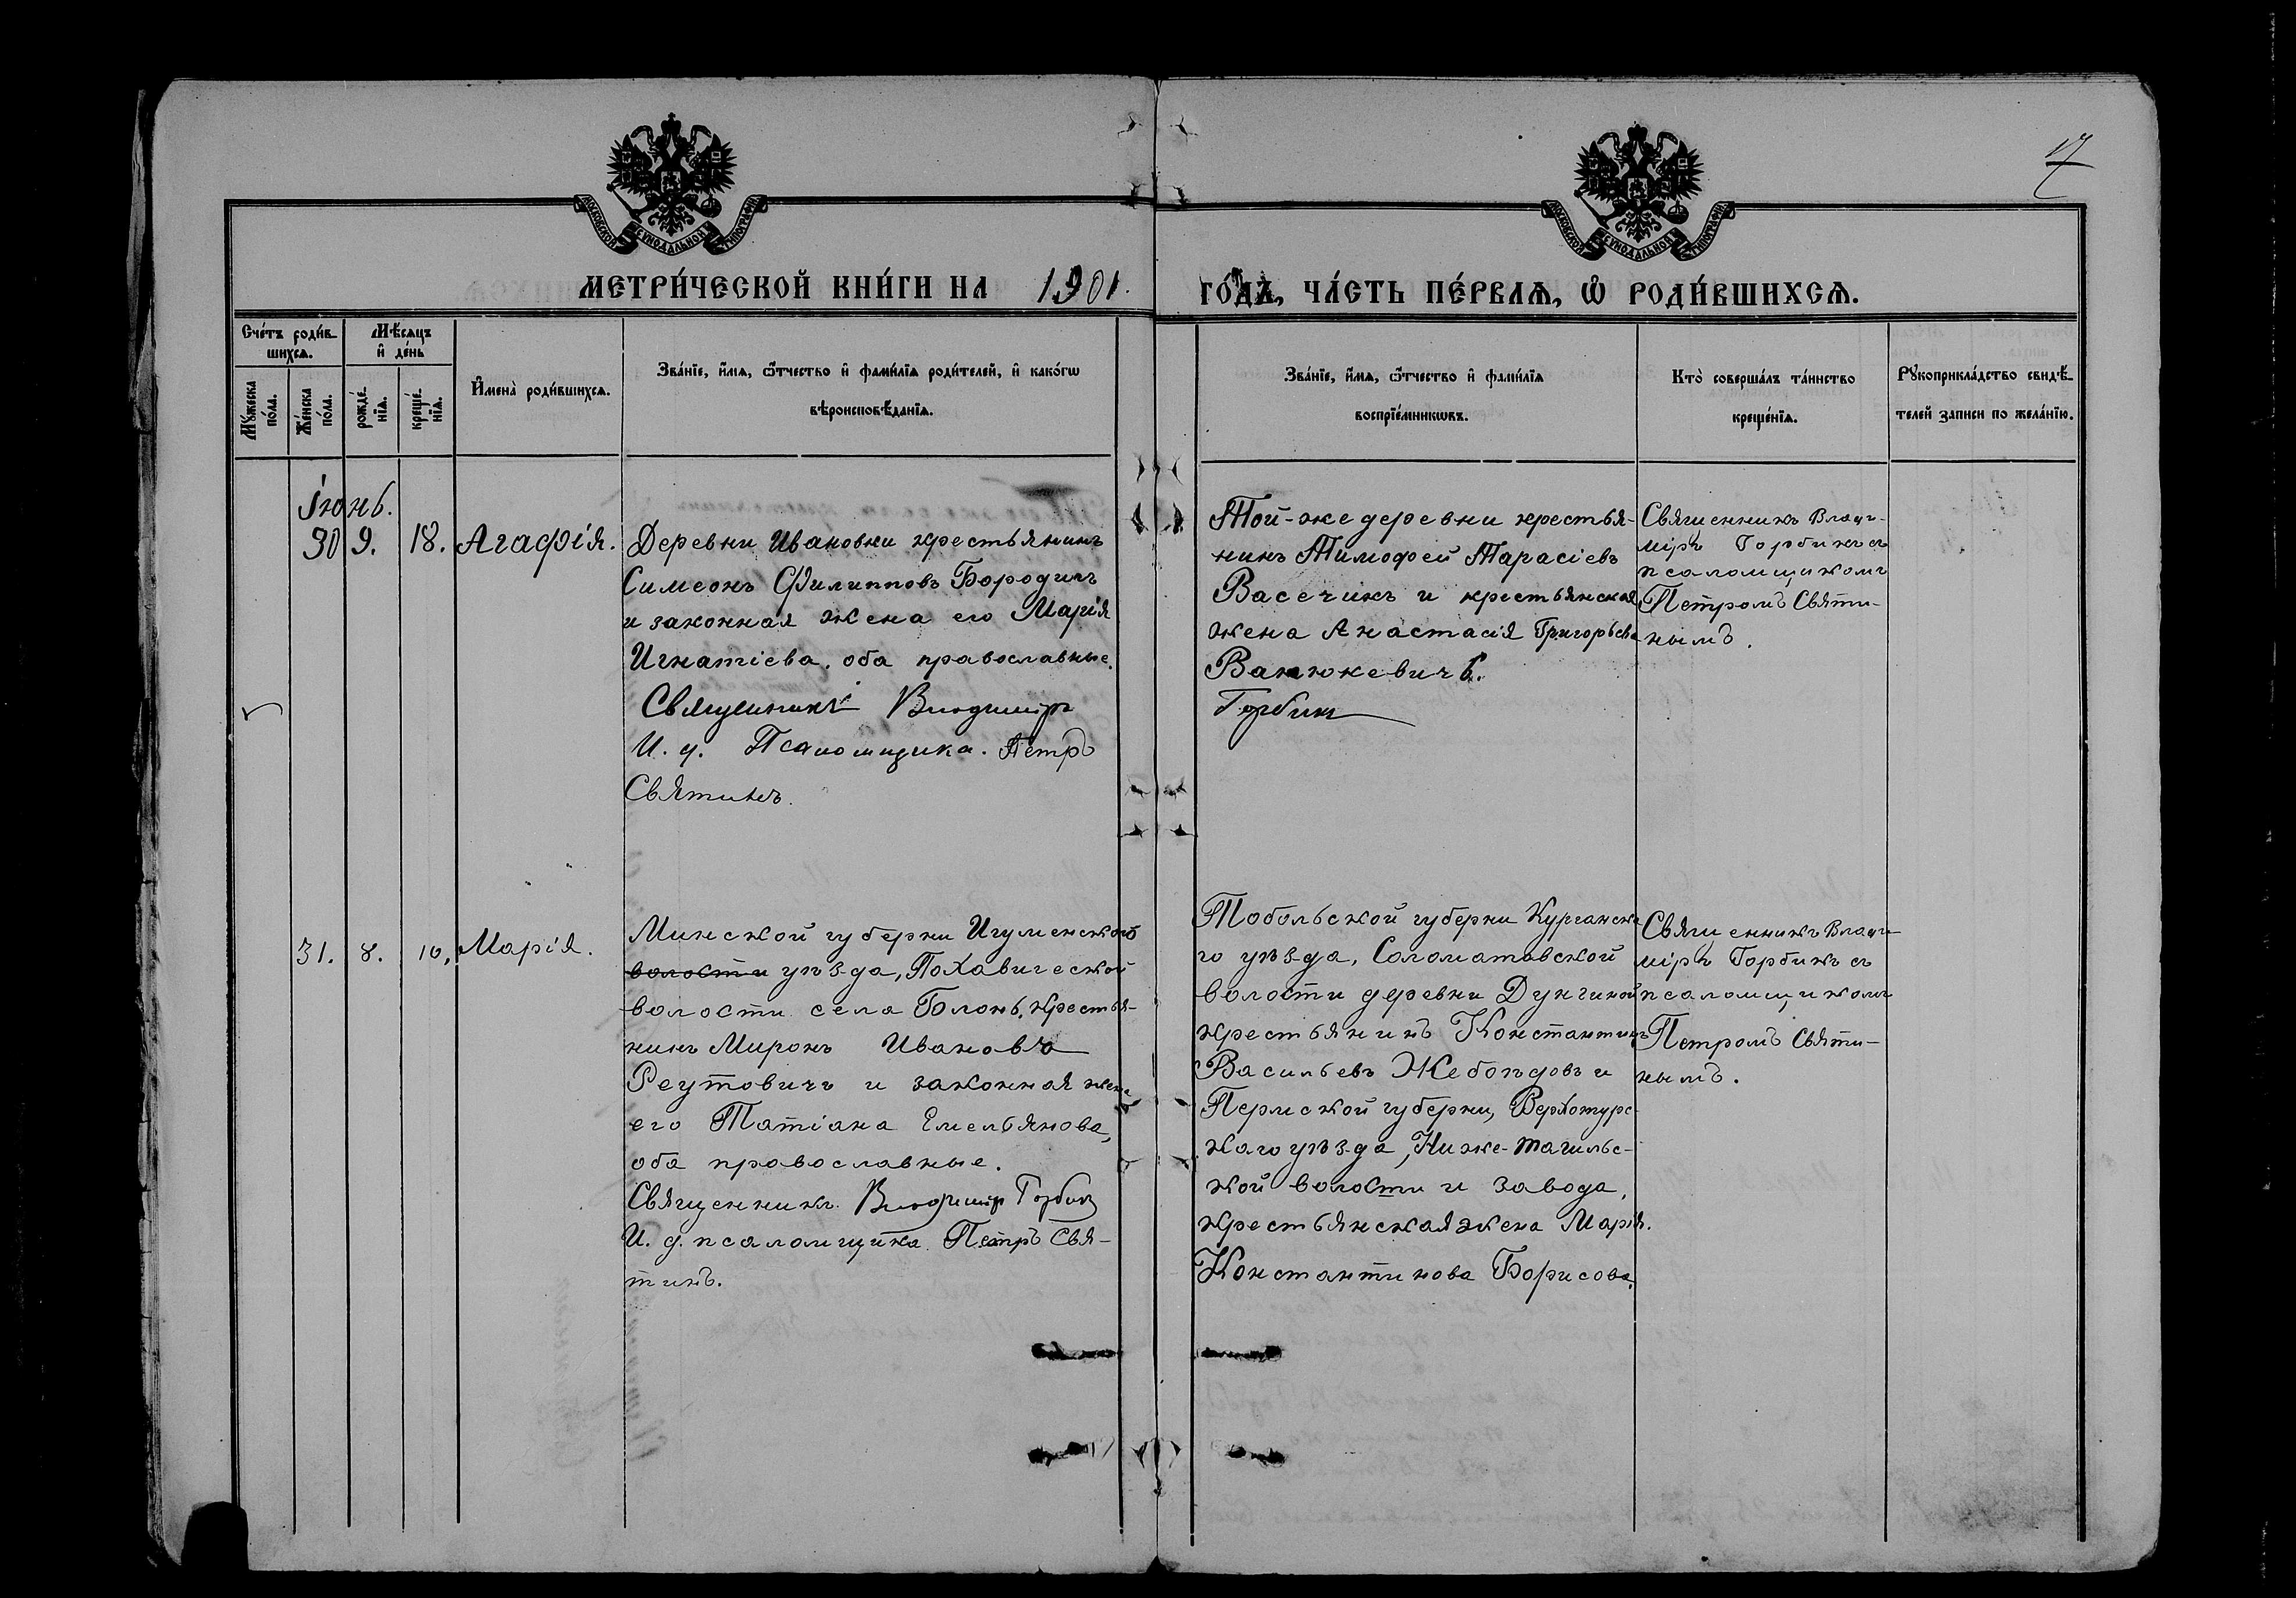 17
МОСКОВСКОЙ СѴНОДАЛЬНОЙ ТИПОГРАФІИ
МОСКОВСКОЙ СѴНОДАЛЬНОЙ ТИПОГРАФІИ
МЕТРИ́ЧЕСКОЙ КНИ́ГИ НА 1901.
ГО́ДЪ, ЧА́СТЬ ПЕ́РВАѦ, Ѡ РОДИ́ВШИХСѦ.
Сче́тъ роди́в
шихсѧ.
Мѣ́сѧцъ
и҆ де́нь
Мꙋ́жеска
по́ла.
Же́нска
по́ла.
рожде́-
нїѧ.
креще́-
нїѧ.
И҆мена̀ роди́вшихсѧ.
Зва́нїе, и҆́мѧ, ѻ҆́тчество и҆ фами́лїѧ роди́телей, и҆ како́гѡ
вѣроисповѣ́данїѧ.
Зва́нїе, и҆́мѧ, ѻ҆́тчество и҆ фами́лїѧ
воспрїе́мникѡвъ.
Кто̀ соверша́лъ та́инство
креще́нїѧ.
Рꙋкоприкла́дство свидѣ́-
телей записи по жела́нїю.
Іюнь.
30 9. 18. Агафія.
Деревни Ивановки крестьянинъ
Симеонъ Филипповъ Бородичъ
и законная жена его Марія
Игнатіева, оба православные.
Священникъ Владиміръ
И. д. Псаломщика. Петръ
Святинъ.
Той-же деревни крестья-
нинъ Тимофей Тарасіевъ
Васечикъ и крестьянская
жена Анастасія Григорьева
Ванюкевичъ.
Горбин
Священникъ Влади-
міръ Горбинъ съ
псаломщикомъ
Петромъ Святи-
нымъ.
31. 8. 10, Марія.
Минской губерни Игуменского
волости уѣзда, Похавической
волости села Блонь, крестья-
нинъ Миронъ Ивановъ
Реутовичъ и законная жена
его Татіана Емельянова,
оба православные.
Священникъ Владиміръ Горбин
И. д. псаломщика Петръ Свя-
тинъ.
Тобольской губерни Курганска-
го уѣзда, Соломатовской
волости деревни Дунгиной
крестьянинъ Константинъ
Васильевъ и
Пермской губерни, Верхотурс-
каго уѣзда, Ниже-Тагильс-
кой волости и завода,
крестьянская жена Марія.
Константинова Борисова.
Священникъ Влади-
міръ Горбинъ съ
псаломщикомъ
Петромъ Святи-
нымъ.